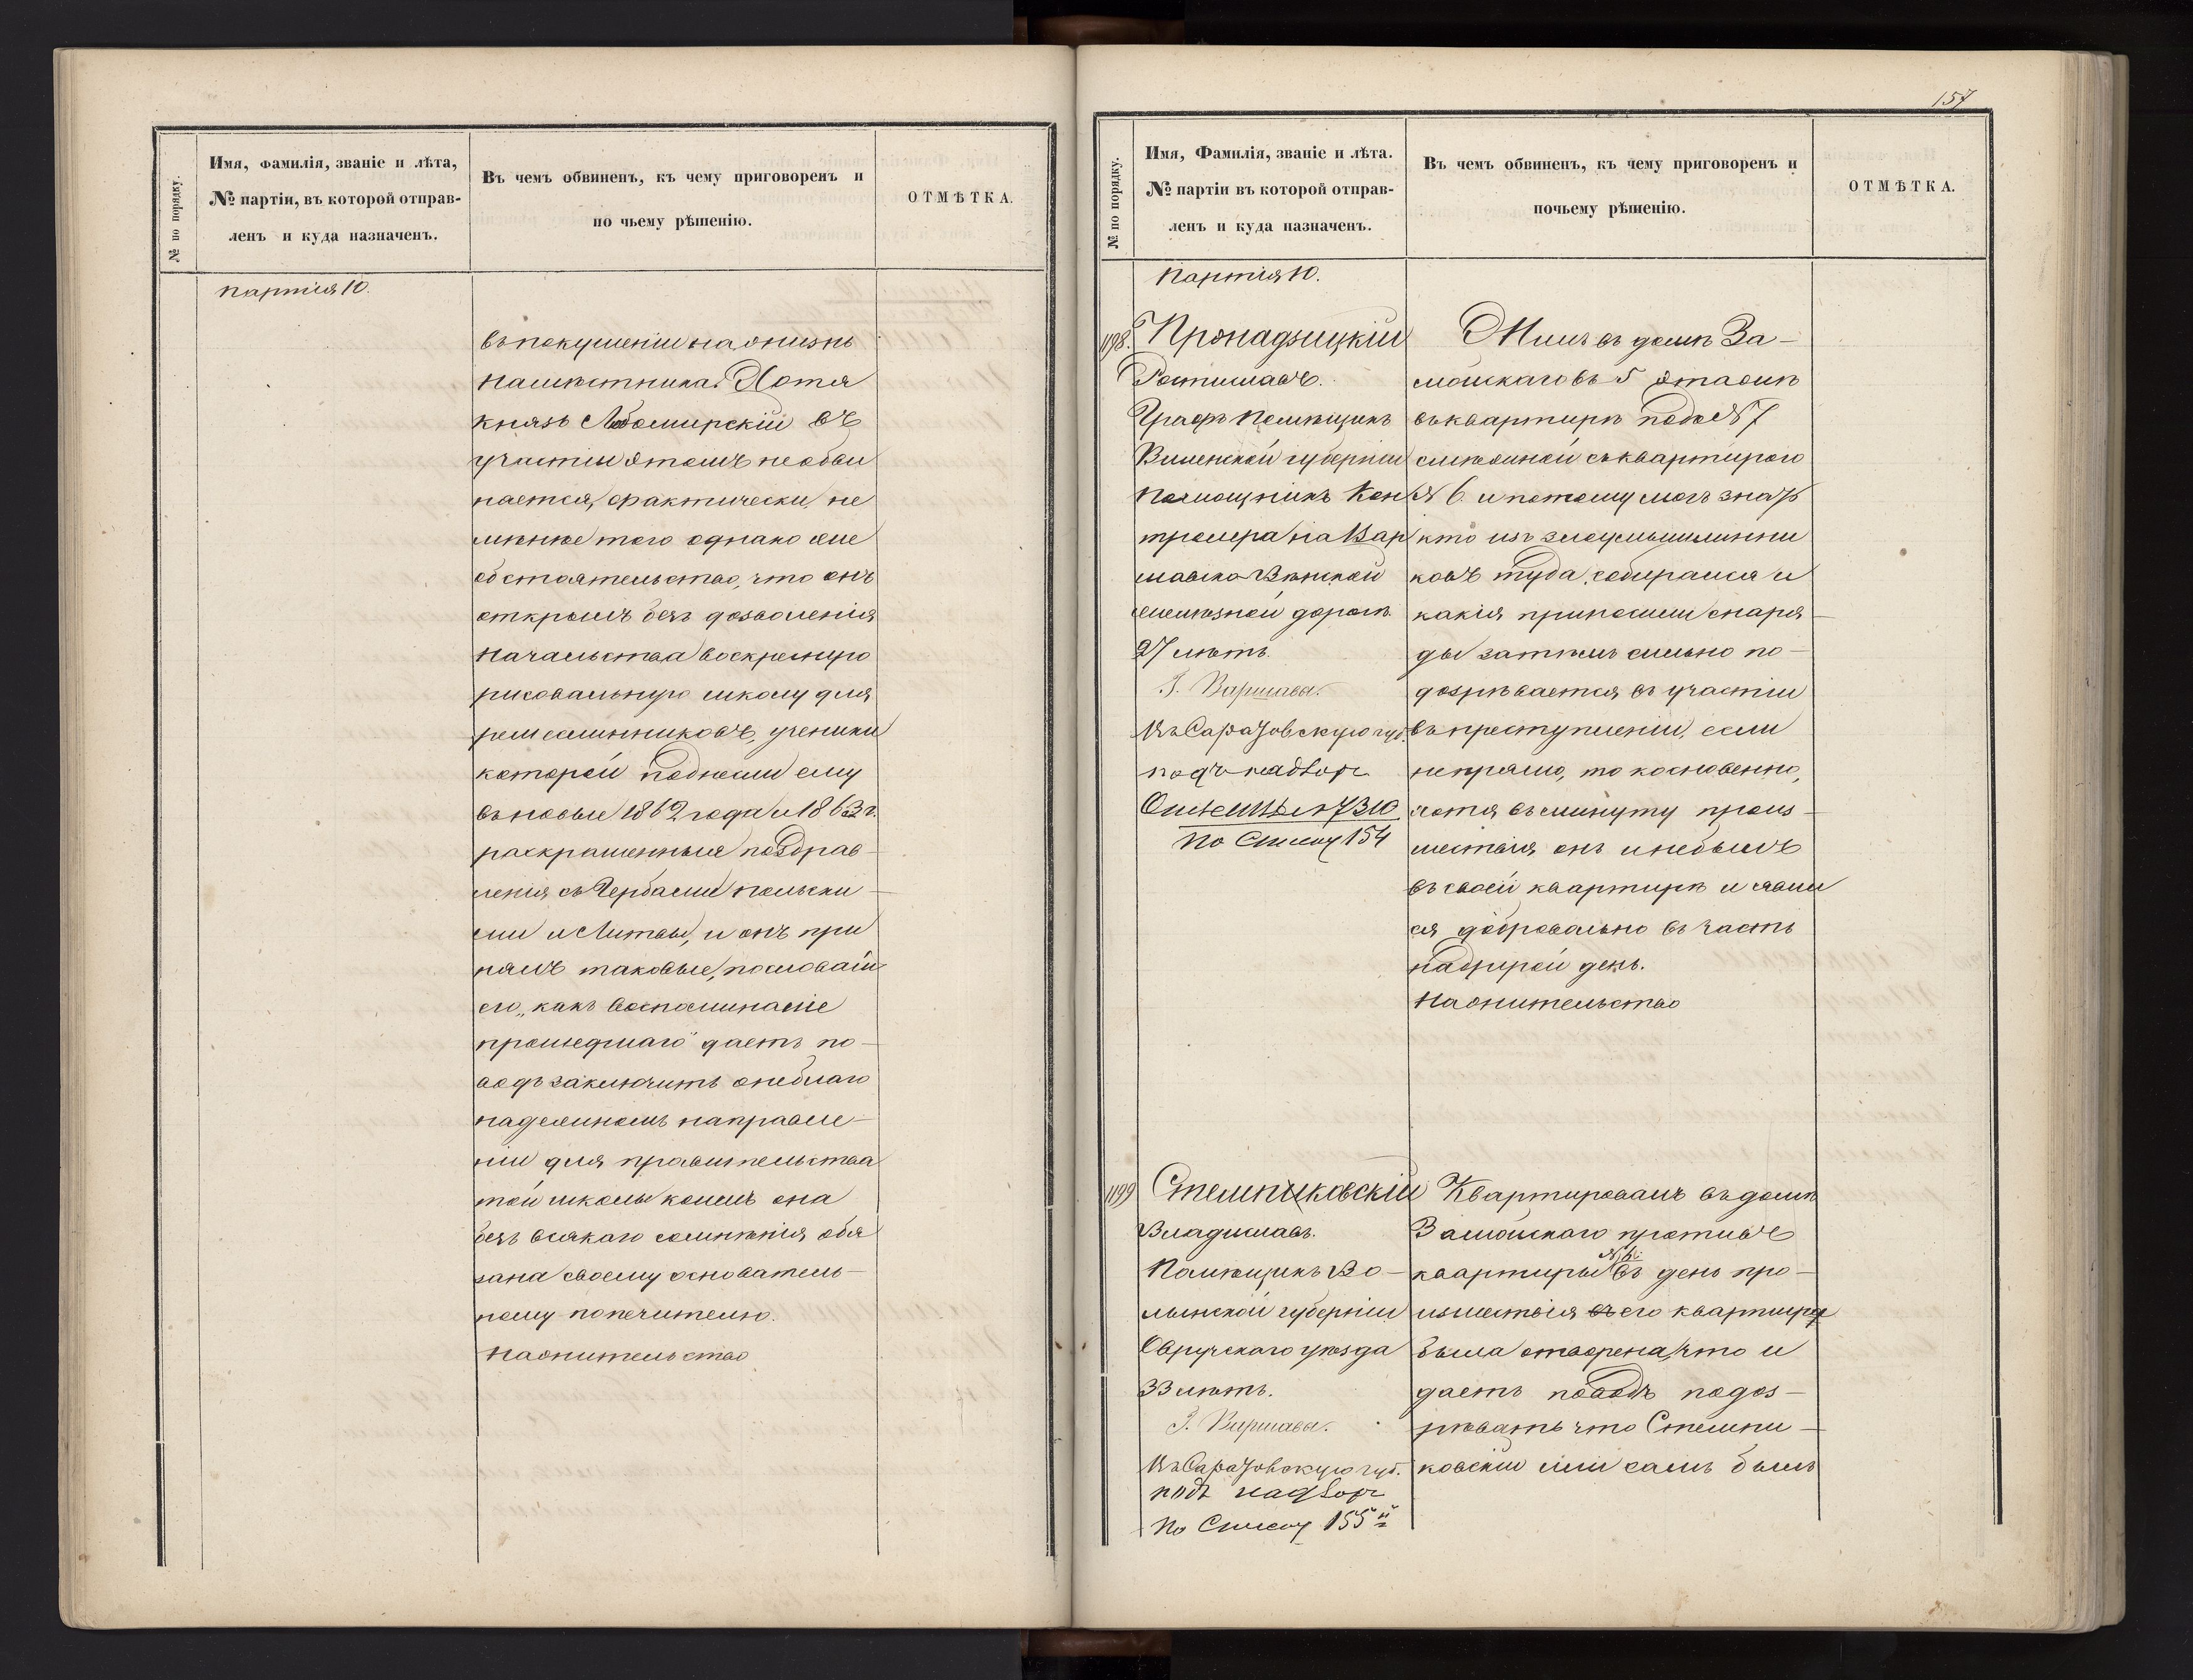 № по порядку.
Имя, Фамилія, званіе и лѣта,
№ партіи, въ которой отправ-
ленъ и куда назначенъ.
Въ чемъ обвиненъ, къ чему приговоренъ и
по чьему рѣшенію.
ОТМѢТКА.
партія 10.
въ покушеніи на жизнь
Намѣстника. Хотя
Князь Любомирскій въ
участіи этомъ не обви
няется, фактически, не
менѣе того однако же
обстоятельство, что онъ
открылъ безъ дозволенія
Начальства воскресную
рисовальную школу для
ремесленниковъ, ученики
которой поднесли ему
въ новые 1862 года и 1863 г.
раскрашенные поздрав-
ленія съ Гербами польски-
ми и Литвы, и онъ при
нялъ таковые, по словамъ
его, „какъ воспоминаніе
прошедшаго" даетъ по-
водъ заключить о неблаго
надежномъ направле-
ніи для правительства
той школы коимъ она
безъ всякаго сомнѣнія обя
зана своему основатель-
ному попечителю.
На жительство
157
№ по порядку.
Имя, Фамилія, званіе и лѣта.
№ партіи въ которой отправ-
ленъ и куда назначенъ.
Въ чемъ обвиненъ, къ чему приговоренъ и
почьему рѣшенію.
ОТМѢТКА.
Партія 10.
1198. Пронадзицкій
Ростиславъ.
Графъ Помѣщикъ
Виленской губерніи
Помощникъ Кон
тролера на Вар
шавско-Вѣнской
желѣзной дорогѣ.
27 лѣтъ.
З. Варшава.
Въ Саратовскую губ.
подъ надзоръ
7310
По Списку 154
Жилъ въ домѣ За-
мойскаго въ 5 этажѣ
въ квартирѣ подъ № 7
смѣжной съ квартирою
№ 6. и потому могъ знать
кто изъ злоумышленни
ковъ туда собирался и
какія приносили снаря-
ды затѣмъ сильно по-
дозрѣвается въ участіи
въ преступленіи, если
непрямо, то косвенно,
хотя въ минуту проис-
шествія онъ и небылъ
въ своей квартирѣ и явил
ся добровольно въ часть
надругой день.
На жительство
1199 Стемпиковскій
Владиславъ.
Помѣщикъ Во-
лынской губерніи
Овручскаго уѣзда
33 лѣтъ.
З. Варшава.
Въ Саратовскую губ.
подъ надзоръ
По Списку 155й
Квартировалъ въ домѣ
Замойскаго противъ
квартиры № 6. въ день про-
изшествія въ его квартира
была отворена, что и
даетъ поводъ подоз-
рѣвать что Стемпи-
ковскій или самъ былъ